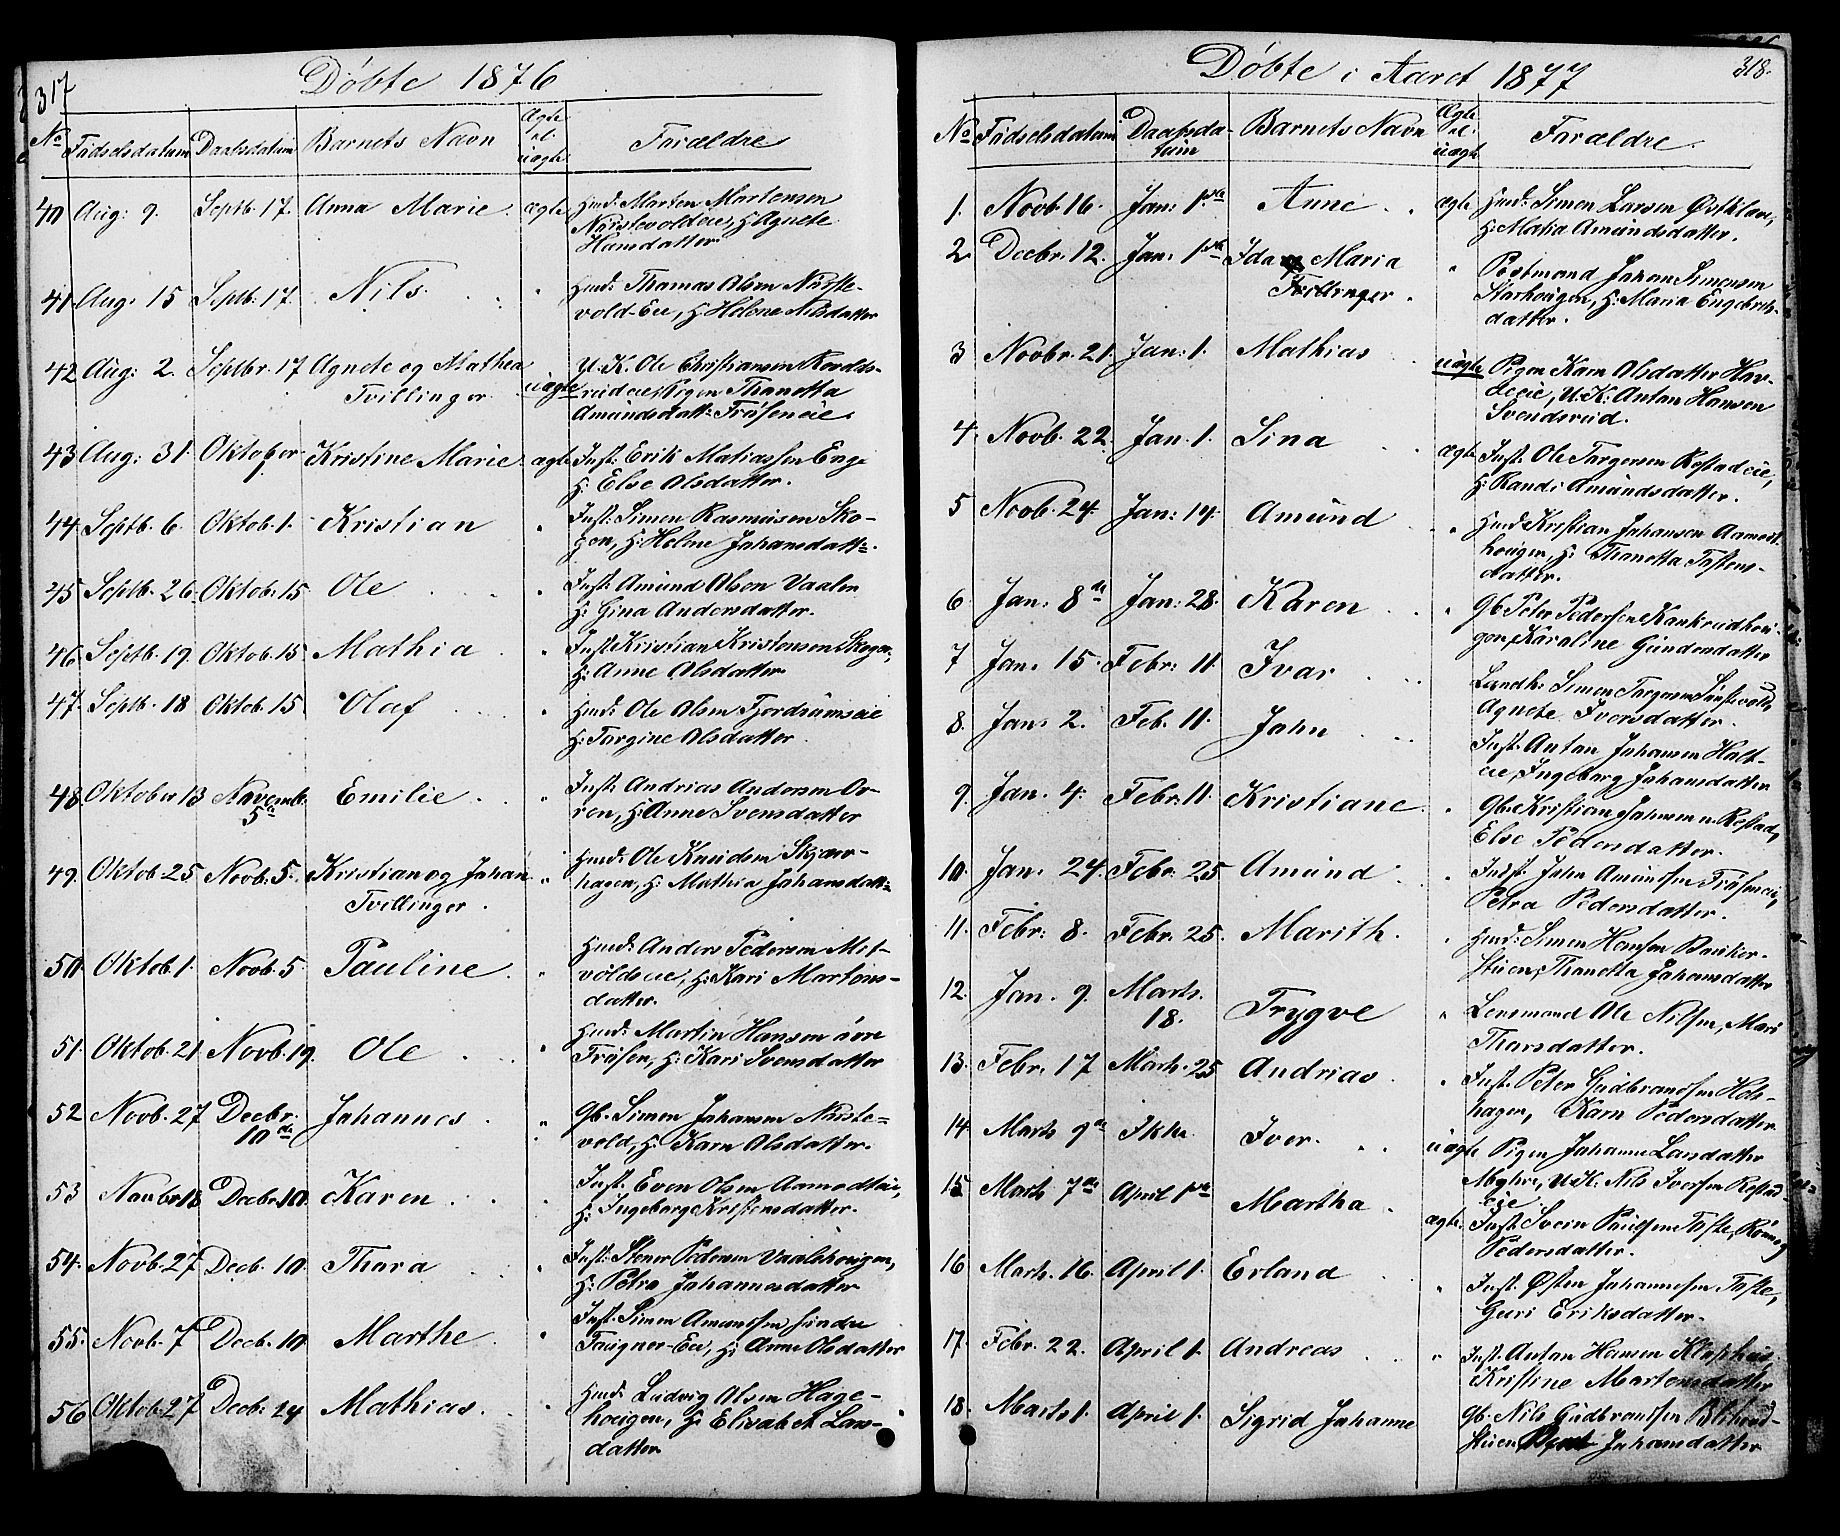 317
Döbte 1876
No Födselsdatum Daabsdatum Barnets Navn Ægte el. uægte Forældre
40 Aug: 9. Septb. 17. Anna Marie. ægte Husm: Morten Mortensen
Nordstevoldeie, H: Agnete
Hansdatter
41 Aug: 15 Septb. 17. Nils " Husm: Thomas Olsen
vold-Eie, H: Helene Nilsdatter
42 Aug: 2. Septbr. 17 Agnete og Mathea
Tvillinger uægte U.K. Ole Christiansen
eie Pigen Thonetta
Amundsdatt: Fröseneie.
43 Aug: 31. Oktober Kristine Marie ægte Inst: Erik Matiassen Enge
H: Else Olsdatter.
44 Septb. 6. Oktob. 1. Kristian " Inst: Simen Rasmusen Sko-
gen, H: Helene Johansdatt:
45 Septb. 26. Oktob. 15 Ole " Inst: Amund Olsen Vaalen
H: Gina Andersdatter.
46 Septb. 19. Oktob. 15 Mathia " Inst. Kristian Kristensen Skogen,
H: Anne Olsdatter
47. Septb. 18 Oktob. 15 Olaf " Husm: Ole Olsen Fjordrumseie
H: Torgine Olsdatter.
48 Oktober 13 Novemb. 5te Emilie " Inst: Andrias Andersen Ov-
ren, H: Anne Svensdatter
49. Oktob. 25 Novb. 5. Kristian og Johan
Tvillinger. " Husm: Ole Knudsen Skjær-
hagen, H: Mathia Johansdatt:
50 Oktob. 1. Novb. 5 Pauline " Husm: Anders Pedersen Mit-
voldseie, H: Kari Mortens-
datter.
51. Oktob. 21 Novb. 19. Ole " Husm: Martin Hansen övre
Frösen, H: Kari Svensdatter
52 Novb. 27 Decbr. 10de Johannes " Gb. Simen Johansen
vold, H: Karn Olsdatter.
53 Novbr 18 Decbr. 10. Karen " Inst: Even Olsen Aamodteie,
H: Ingeborg Kristensdatter.
54. Novb. 27 Decb. 10 Thora " Inst: Stener Pedersen Vaalshougen,
H: Petra Johannesdatter
55. Novb. 7 Decb. 10 Marthe " Inst. Simen Amundsen söndre
Eie, H: Anne Olsdatter
56 Oktob. 27 Decb. 24 Mathias " Husm: Ludvig Olsen Hage-
hougen, H: Elisabeth Lars-
datter
318.
Döbte i Aaret 1877
No Födselsdatum Daabsdatum Barnets Navn Ægte el. uægte Forældre
1. Novb. 16. Jan: 1ste Anne ægte Husm: Simen Larsen
H: Matia Amundsdatter.
2 Decbr. 12. Jan: 1ste Ida og Maria
Tvillinger " Postmand Johan Simensen
Storhougen, H: Maria Engebrets-
datter.
3 Novbr. 21. Jan: 1. Mathias uægte Pigen Karn Olsdatter
U.K: Anton Hansen
Svendsrud.
4. Novb. 22. Jan. 1. Sina ægte Inst. Ole Torgersen Restadeie,
H: Randi Amundsdatter.
5 Novb. 24. Jan: 14. Amund " Husm: Kristian Johansen
hougen, H: Thonetta Tostens-
datter.
6. Jan: 8de Jan: 28. Karen " Gb: Peter Pedersen Kankrudhou-
gen, Karoline Gundersdatter
7 Jan. 15. Febr: 11. Ivar " Landh: Simen Torgersen
Agnete Iversdatter.
8. Jan: 2. Feb. 11. John " Inst. Anton Johansen Holt-
eie, Ingeborg Johansdatter
9. Jan. 4. Febr. 11. Kristiane. " Gb: Kristian Johnsen n. Restad,
Else Pedersdatter.
10. Jan. 24. Febr. 25 Amund " Indst. John Amundsen Fröseneie,
Petra Pedersdatter.
11. Febr: 8. Febr. 25. Marith. " Husm: Simen Hansen Banker-
stuen, Thonetta Johansdatter
12. Jan. 9. Marts. 18. Trygve " Lensmand Ole Nilsen, Mari
Thorsdatter.
13. Febr. 17 Marts. 25 Andrias " Inst. Peter Gudbrandsen Hols-
hagen, Karn Pedersdatter
14. Marts 9de Ikke Iver. uægte Pigen Johanne Larsdatter
Myhre, U.K. Nils Iversen Restad-
eie
15 Marts 7de April 1ste Martha ægte. Inst. Svein Poulsen Toste, Rönnog
Pedersdatter.
16 Marts. 16. April 1. Erland " Inst. Østen Johannesen Toste,
Guri Eriksdatter.
17. Febr. 22. April 1. Andreas " Inst. Anton Hansen
Kristine Mortensdatter
18. Marts 1. April 1. Sigrid Johanne Gb. Nils Gudbrandsen
stuen Johansdatter